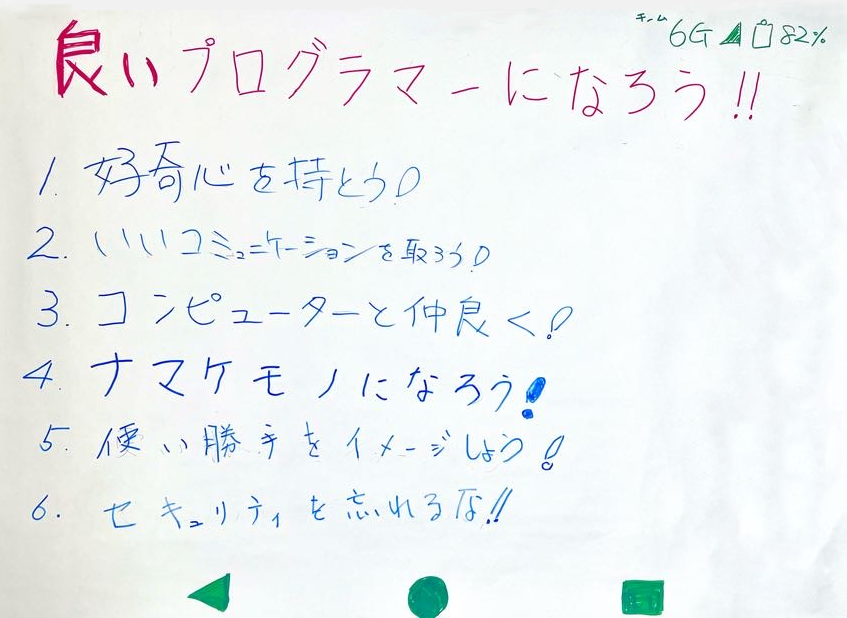 チーム 6G 82%
良いプログラマーになろう!!
1. 好奇心を持とう!
2. いいコミュニケーションを取ろう!
3. コンピューターと仲良く!
4. ナマケモノになろう!
5. 使い勝手をイメージしよう!
6. セキュリティを忘れるな!!